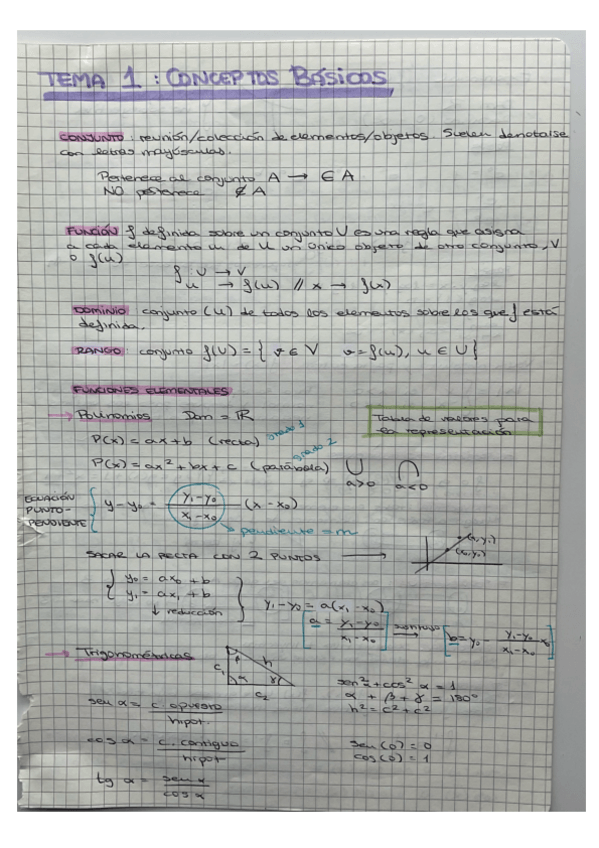 TEMA 1 : CONCEPTOS BÁSICOS
CONJUNTO : reunión/colección de elementos/objetos. Suelen denotarse
con letras mayúsculas.
Pertenece al conjunto A → ∈ A
NO pertenece ∉ A
FUNCIÓN f definida sobre un conjunto U es una regla que asigna
a cada elemento u de U un único objeto de otro conjunto, V
ó f(u)
f : U → V
u → f(u) // x → f(x)
DOMINIO : conjunto (U) de todos los elementos sobre los que f está
definida.
RANGO : conjunto f(U) = { v ∈ V v = f(u), u ∈ U }
FUNCIONES ELEMENTALES
→ Polinomios Dom = ℝ
Tabla de valores para
la representación
P(x) = ax + b (recta) grado 1
P(x) = ax² + bx + c (parábola) grado 2
a>0 a<0
ECUACIÓN PUNTO-PENDIENTE { y - y₀ = (y₁ - y₀)/(x₁ - x₀) (x - x₀)
pendiente = m
SACAR LA RECTA CON 2 PUNTOS →
(x₁, y₁)
(x₀, y₀)
y₀ = ax₀ + b
y₁ = ax₁ + b
↓ reducción
y₁ - y₀ = a(x₁ - x₀)
[a = (y₁ - y₀)/(x₁ - x₀)] → [b = y₀ - (y₁ - y₀)/(x₁ - x₀) x₀]
→ Trigonométricas
c₁ h
α γ
c₂
sen² + cos² α = 1
α + β + γ = 180º
h² = c² + c²
sen α = c. opuesto / hipot.
cos α = c. contiguo / hipot
sen(0) = 0
cos(0) = 1
tg α = sen α / cos α